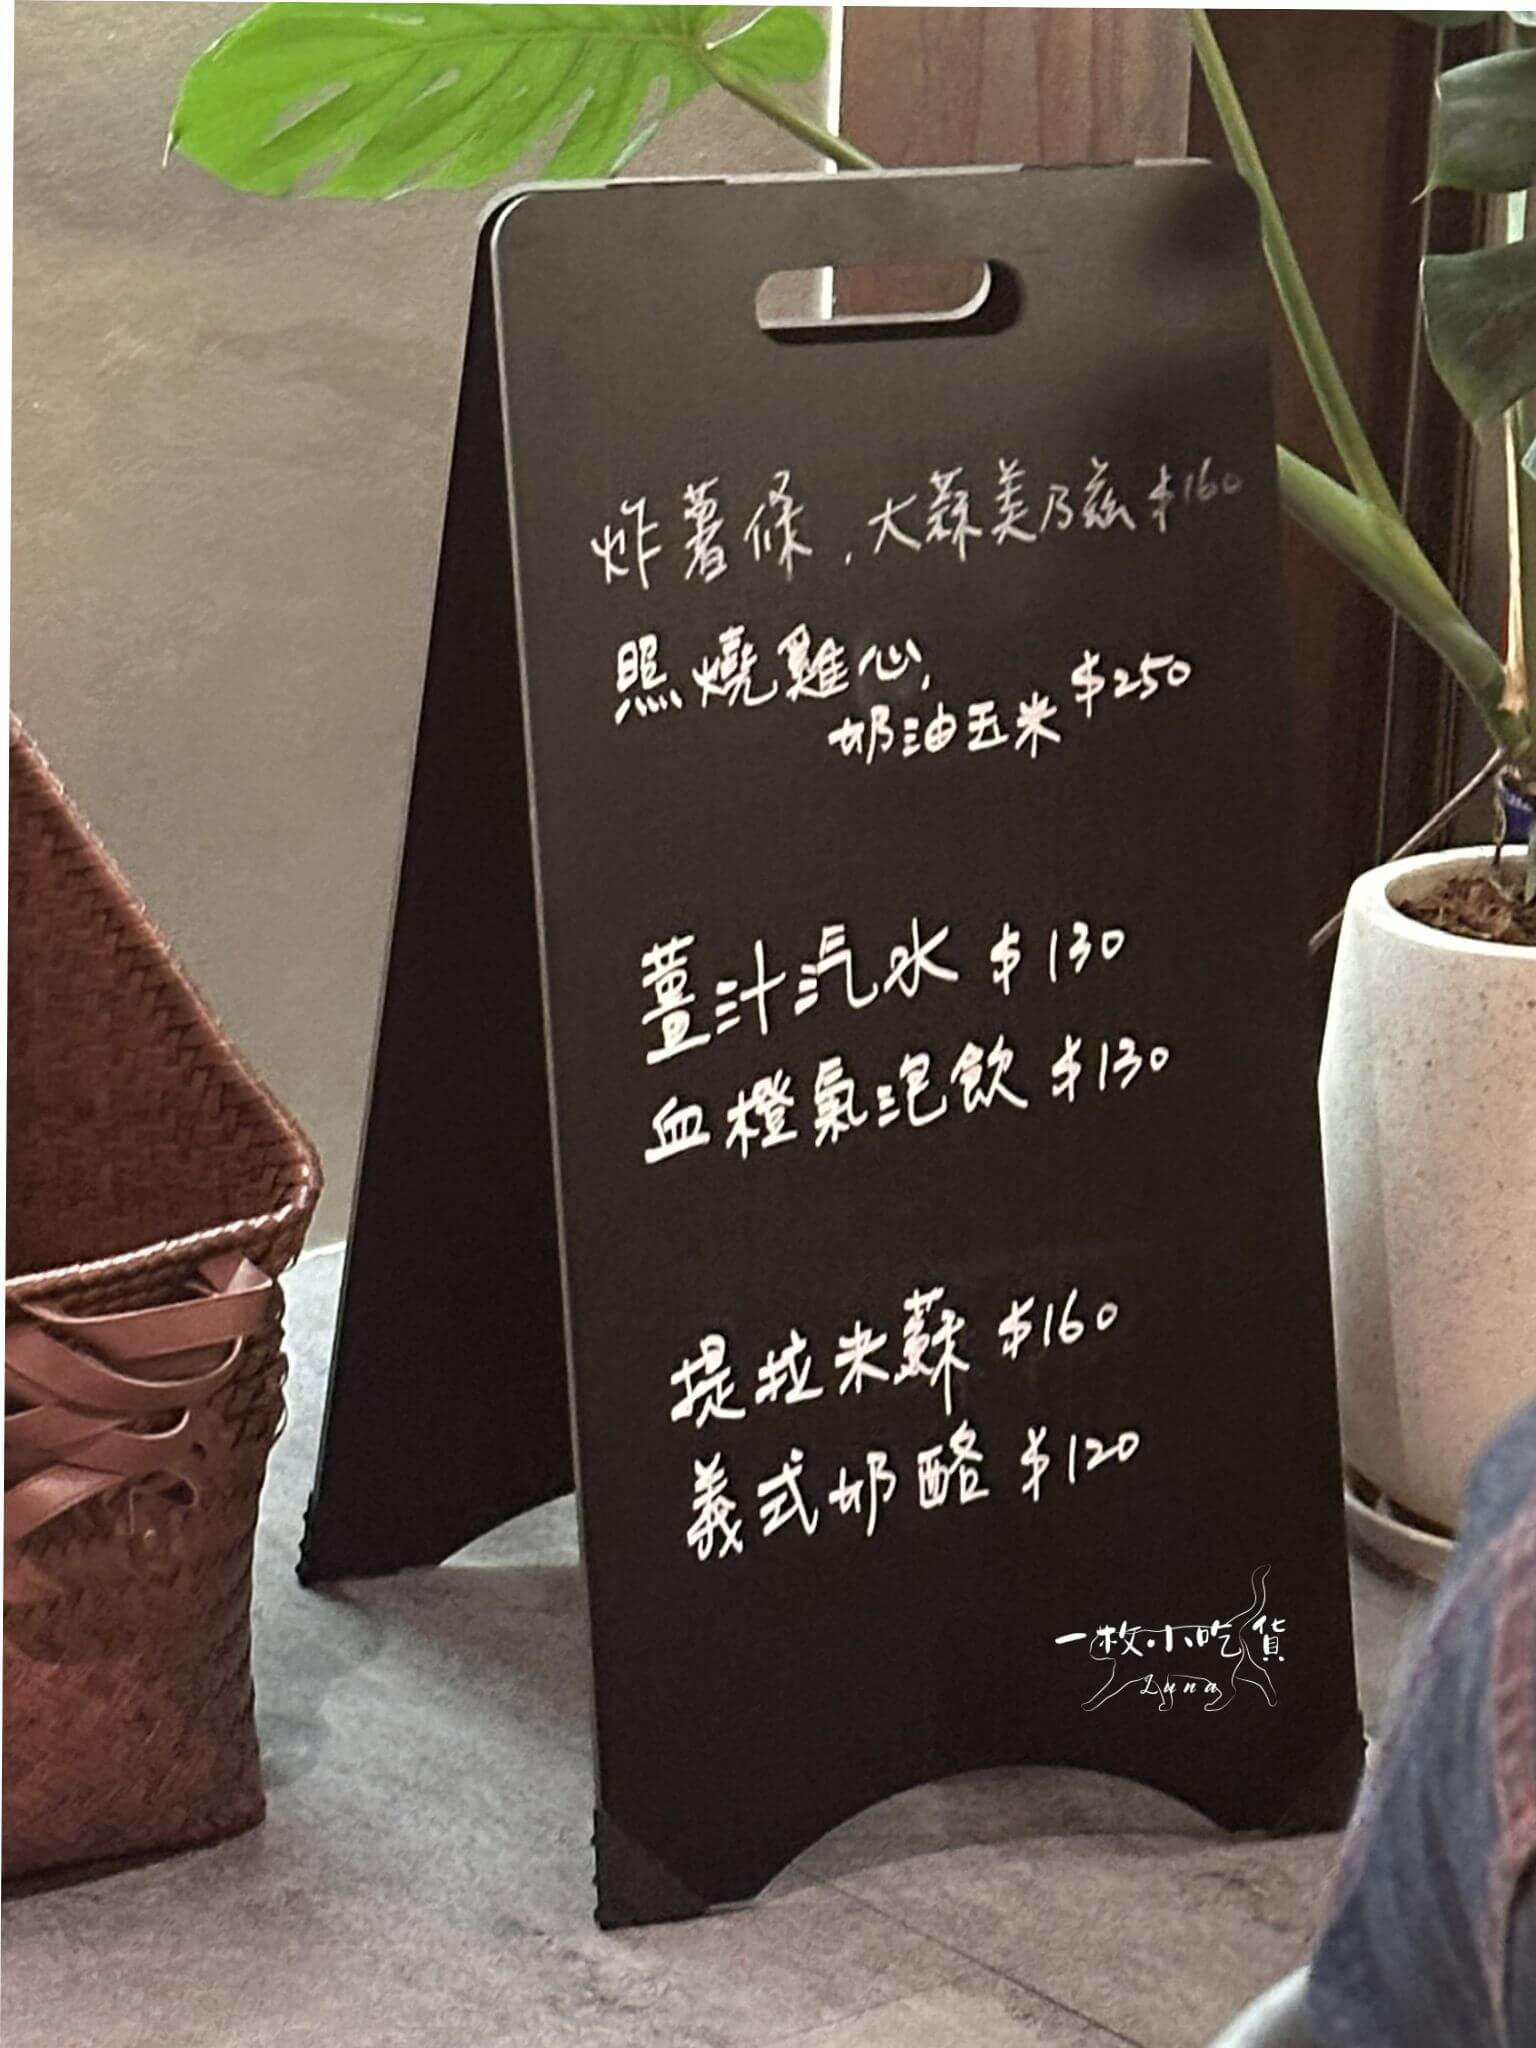 炸薯條、大蒜美乃滋 $160
照燒雞心,
奶油玉米 $250
薑汁汽水 $130
血橙氣泡飲 $130
提拉米蘇 $160
義式奶酪 $120
一枚小吃貨
Luna